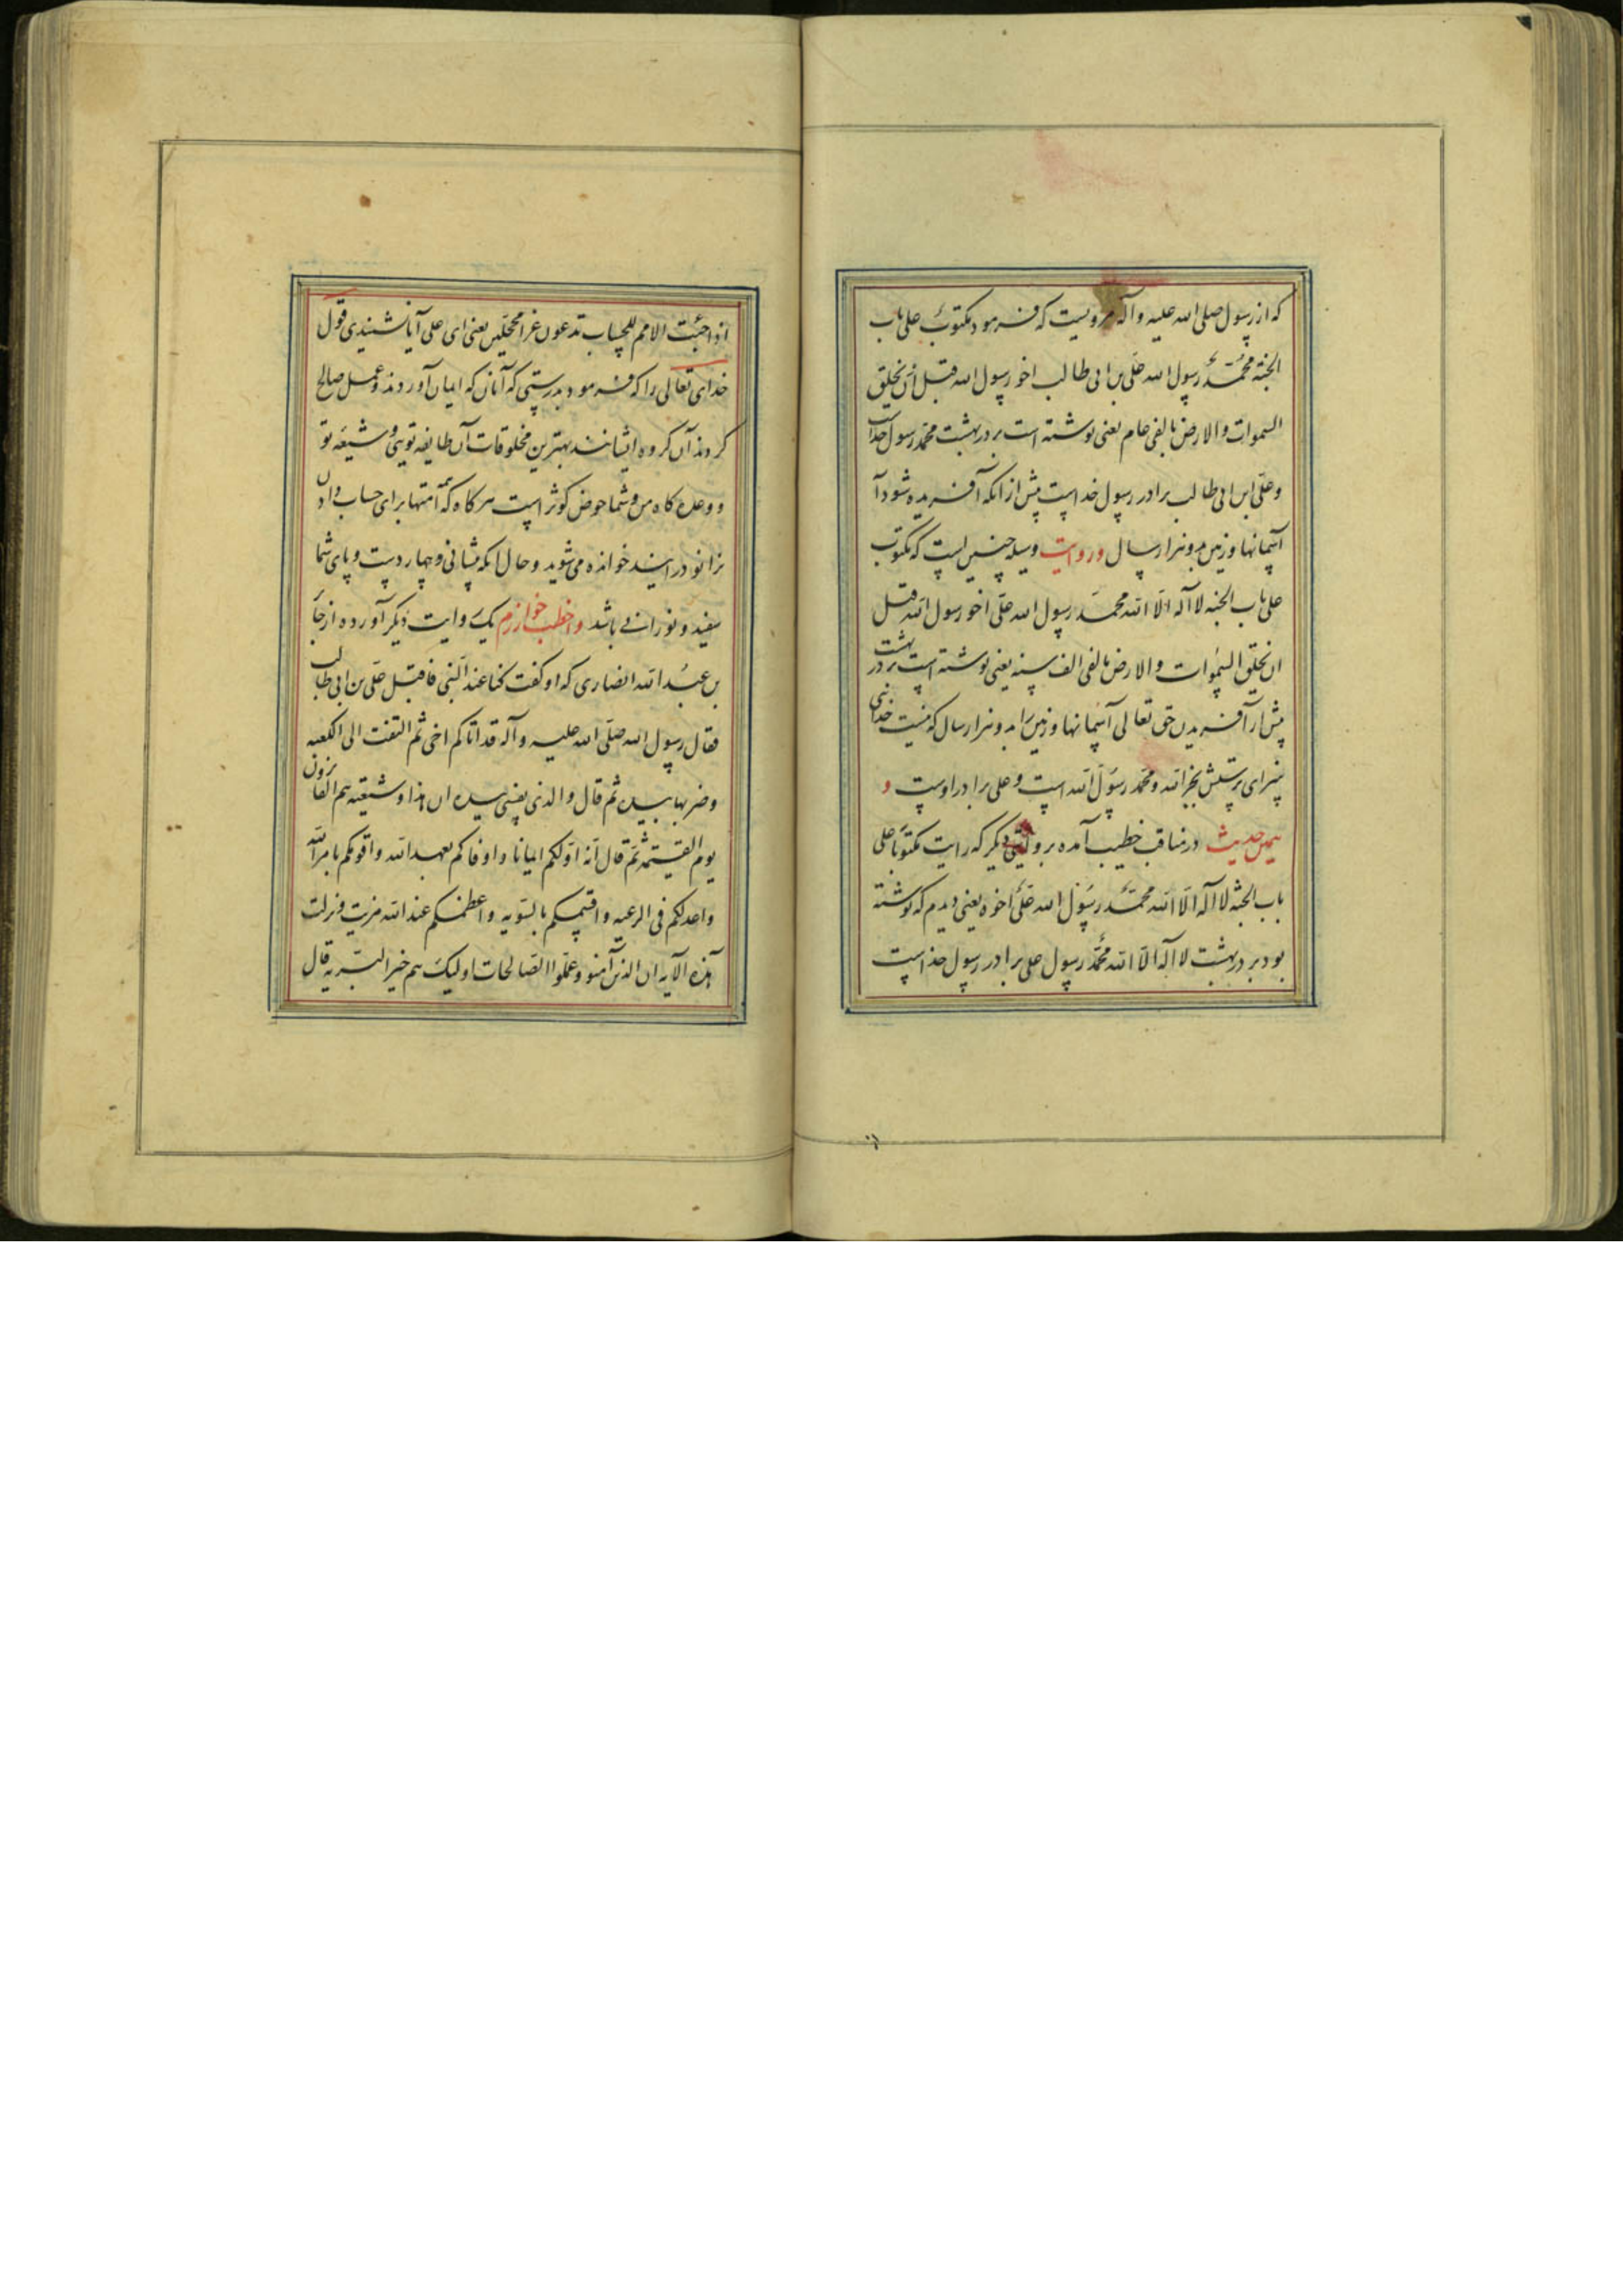 که از رسول صلی الله علیه و آله مرویست که فرمود مکتوبٌ علی باب
الجنة محمّدٌ رسول الله علی بن ابی طالب اخو رسول الله قبل ان یخلق
السموات والارض بالفی عام یعنی نوشته است بر در بهشت محمّد رسول خداست
وعلی ابن ابی طالب برادر رسول خداست پیش از انکه آفریده شود آ
آسمانها و زمین بدو هزار سال و روایت وسیله چنین است که مکتوب
علی باب الجنه لا آله الّا الله محمّد رسول الله علی اخو رسول الله قبل
ان یخلق السموات والارض بالفی الف سنه یعنی نوشته است بر در بهشت
پیش از آفریدن حق تعالی آسمانها و زمین را بدو هزار سال که نیست خدائی
سزای پرستش بجز الله و محمد رسول الله است و علی برادر اوست و
همین حدیث در مناقب خطیب آمده بروایتی دیگر که رایت مکتوبا علی
باب الجنة لا آله الّا الله محمّد رسول الله علی اخوه یعنی دیدم که نوشته
بود بر در بهشت لا آله الّا الله محمّد رسول علی برادر رسول خداست
اذا جئت الامم للحساب تدعون غرا محجلین یعنی ای علی آیا نشنیدی قول
خدای تعالی را که فرمود بدرستی که آنان که ایمان آوردند و عمل صالح
کردند آن کروه ایشانند بهترین مخلوقات آن طایفه تویی و شیعه تو
و وعده کاه من و شما حوض کوثر است هرکاه که امتها برای حساب دادن
بزانو درایند خوانده می شوید و حال انکه پیشانی و چهار دست و پای شما
سفید و نورانی باشد واخطب خوارزم یک روایت دیکر آورده از جا
بن عبد الله انصاری که او کفت کنا عند النبی فاقبل علی بن ابی طالب
فقال رسول الله صلی الله علیه و آله قد اتاکم اخی ثم التفت الی الکعبه
وضربها بیده ثم قال والذی نفسی بیده ان هذا و شیعته هم الفائزون
یوم القیمة ثم قال انه اوّلکم ایمانا و اوفاکم بعهد الله واقومکم بامر الله
واعدلکم فی الرعیه واقسمکم بالسویه واعظمکم عند الله مزیت ونزلت
هذه الآیه ان الذین آمنو وعملوا الصالحات اولیک هم خیر البریه قال